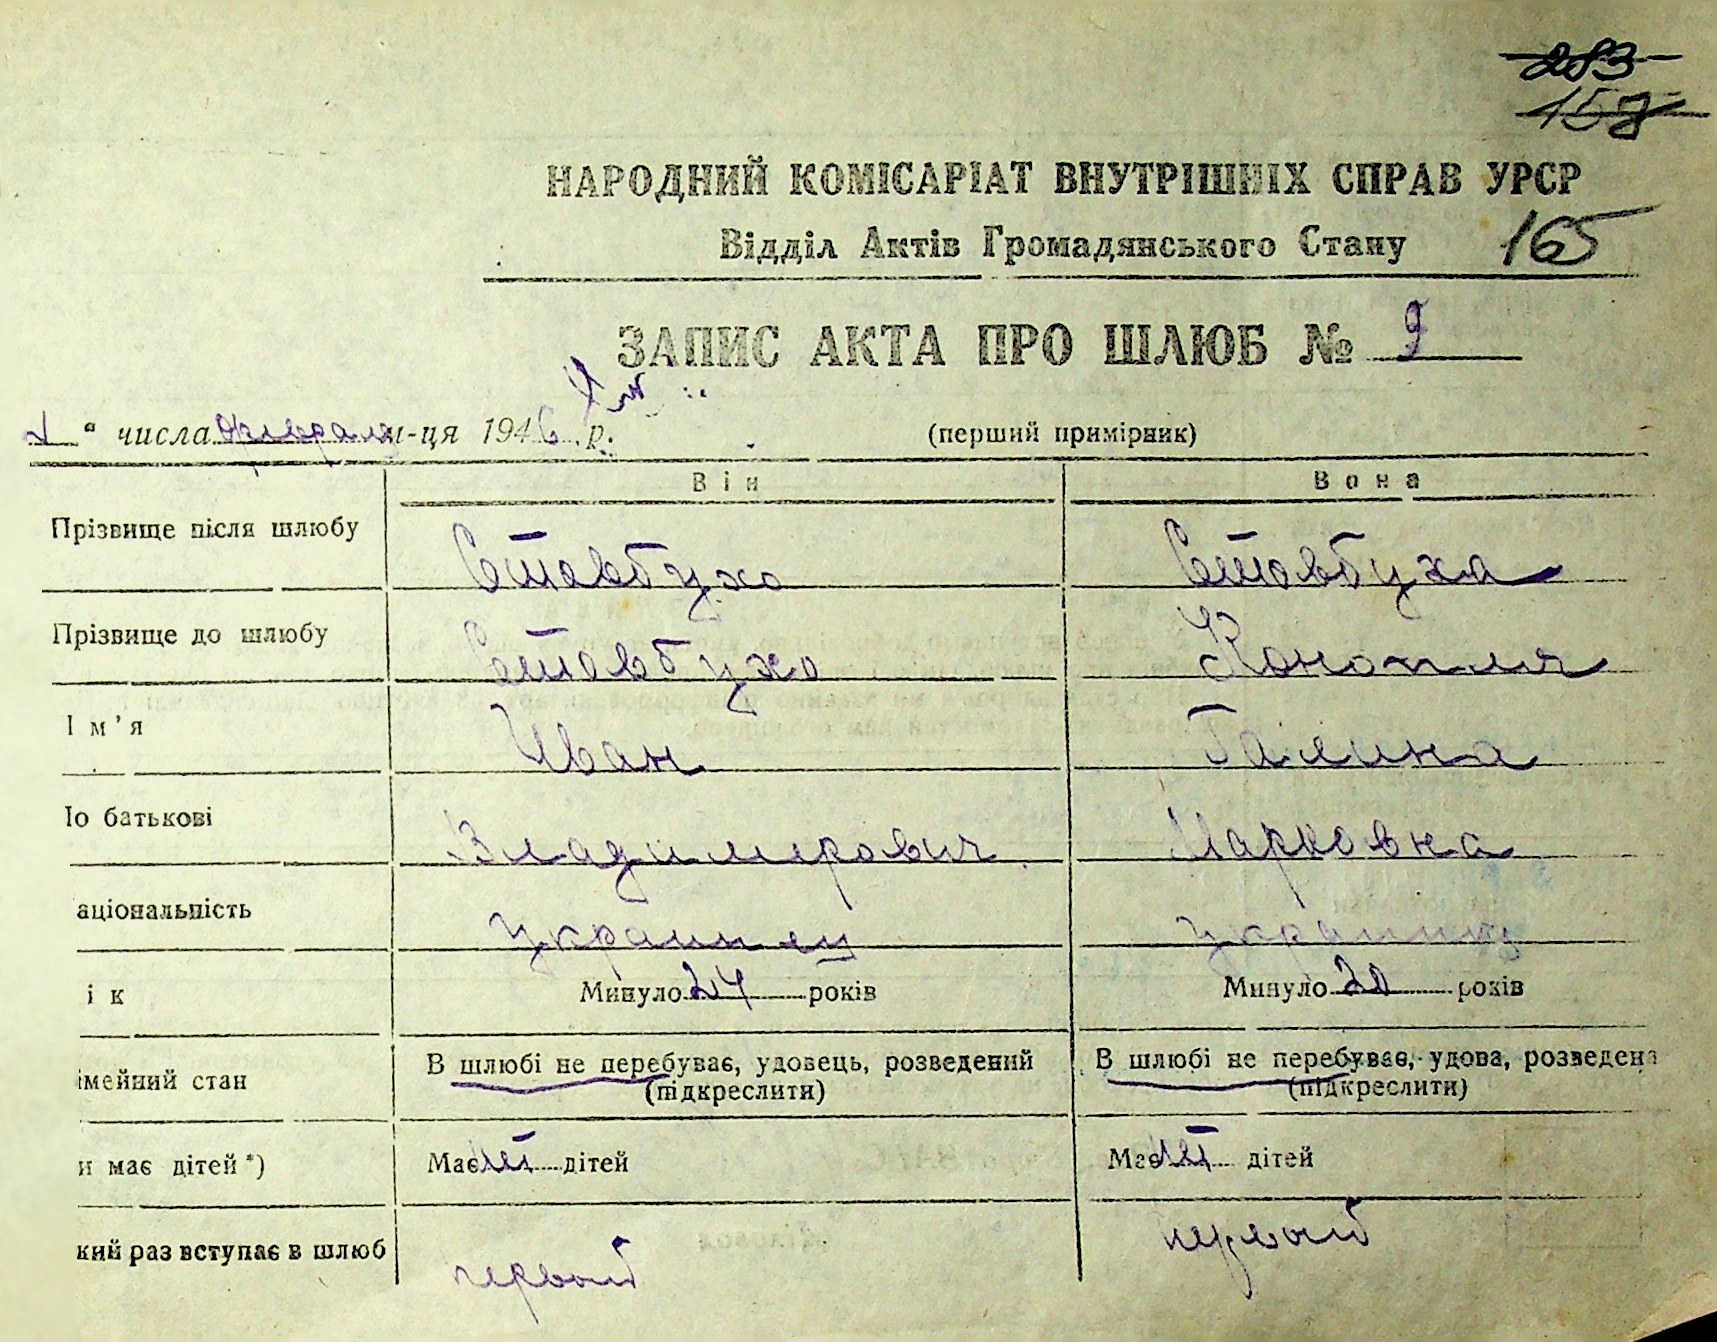 283
157
НАРОДНИЙ КОМІСАРІАТ ВНУТРІШНІХ СПРАВ УРСР
Відділ Актів Громадянського Стану 165
ЗАПИС АКТА ПРО ШЛЮБ № 9
" числа февраля м-ця 1946 р. (перший примірник)
Він Вона
Прізвище після шлюбу Стовбухо Стовбуха
Прізвище до шлюбу Стовбухо Конопля
Ім'я Иван Галина
Іо батькові Владимирович Марковна
аціональність украинец украинка
ік Минуло 24 років Минуло 20 років
імейний стан В шлюбі не перебуває, удовець, розведений В шлюбі не перебуває, удова, розведена
(підкреслити) (підкреслити)
и має дітей *) Має нет дітей Має нет дітей
кий раз вступає в шлюб первый первый